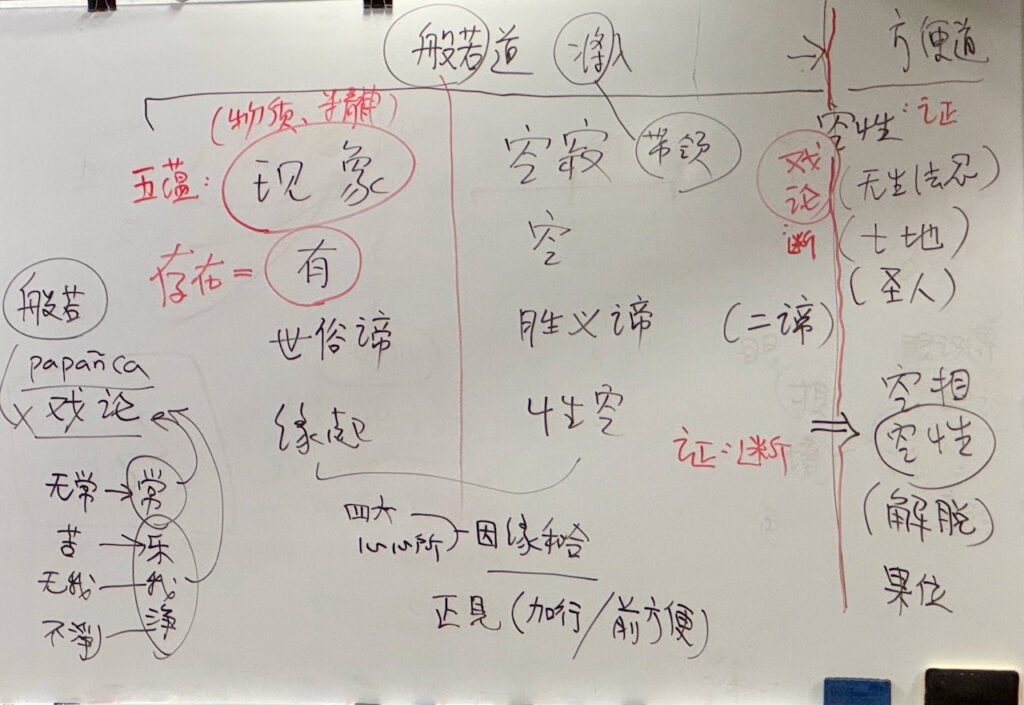 般若道 将入 → 方便道
(物质、精神)
五蕴: 现象
空寂 带领
戏论断
空性:证
(无生法忍)
(七地)
(圣人)
存在 = 有
空
世俗谛
胜义谛
(二谛)
缘起
性空
证:断
⇒
空相
空性
(解脱)
果位
四大
心心所
因缘和合
正见(加行/前方便)
般若
papañca
戏论
无常→常
苦→乐
无我—我
不淨—淨